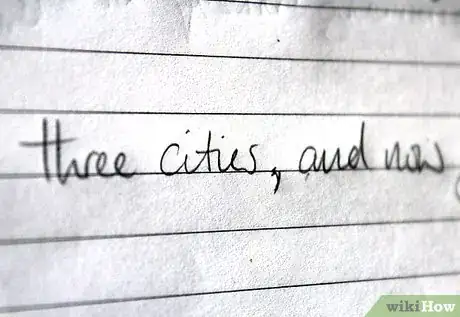 three cities, and now
wikiHow